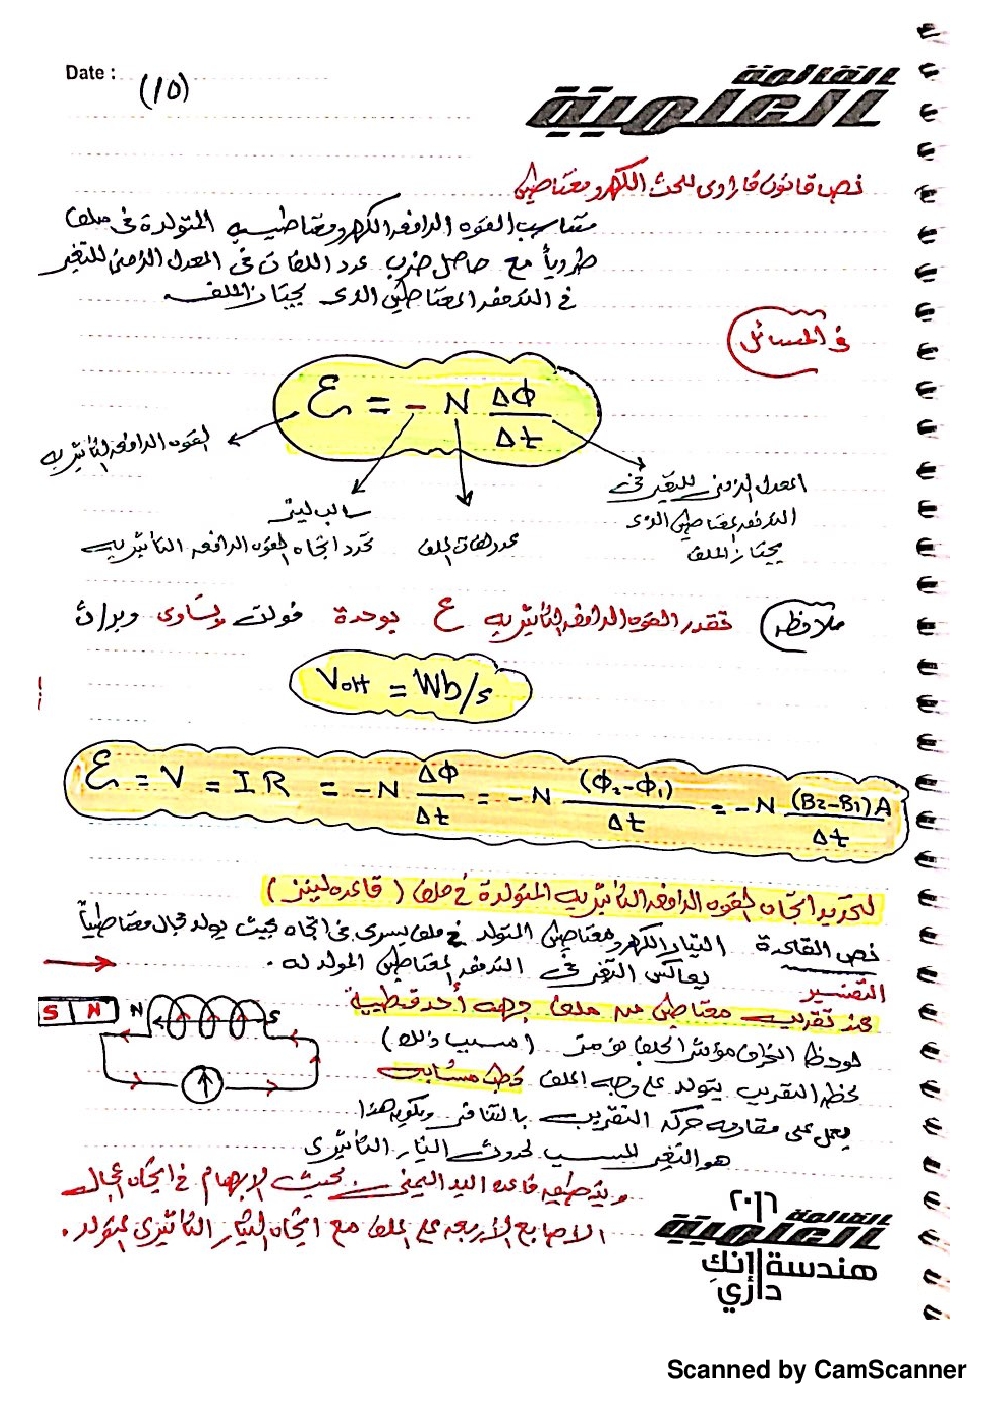 Date :
(١٥)
القائمة
العلمية
نص قانون فارادي للحث الكهرومغناطيسي
تتناسب القوه الدافعه الكهرومغناطيسيه المتولدة في ملف
طردياً مع حاصل ضرب عدد اللفات في المعدل الزمني للتغير
في التدفق المغناطيسي الذي يجتاز الملف
في المسائل
Ɛ = - N ΔΦ/Δt
القوه الدافعه التأثيريه
سالب لينز
تحدد اتجاه القوه الدافعه التأثيريه
عدد لفات الملف
المعدل الزمني للتغير في
التدفق المغناطيسي الذي
يجتاز الملف
ملاحظه تقدر القوه الدافعه التأثيريه Ɛ بوحدة فولت ويساوي ويبر/ث
Volt = Wb/s
Ɛ = V = IR = -N ΔΦ/Δt = -N (Φ₂-Φ₁)/Δt = -N (B2-B1)A/Δt
لتحديد اتجاه القوه الدافعه التأثيريه المتولدة في ملف (قاعده لينز)
نص القاعدة التيار الكهرومغناطيسي المتولد في ملف يسري في اتجاه بحيث يولد مجال مغناطيسياً
يعاكس التغير في التدفق المغناطيسي المولد له .
التفسير
عند تقريب مغناطيس من ملف جهه أحد قطبيه
لوحظ انحراف مؤشر الجلفانومتر (مسبب ذلك)
لحظه التقريب يتولد على وجه الملف قطب مشابه
يعمل على مقاومه حركه التقريب بالتنافر ويكون هذا
هو التغير المسبب لحدوث التيار التأثيري
S N N S
ويتم تطبيق قاعده اليد اليمنى بحيث الإبهام في اتجاه المجال
الاصابع الأربعه على الملف مع اتجاه التيار التأثيري المتولد .
٢٠١٦
القائمة
العلمية
هندسة إنك
دارى
Scanned by CamScanner